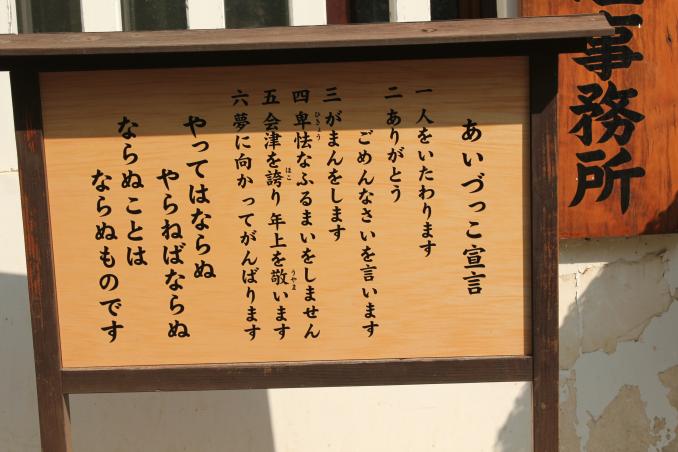 あいづっこ宣言
一 人をいたわります
二 ありがとう
ごめんなさいを言います
三 がまんをします
四 卑怯なふるまいをしません
ひきょう
五 会津を誇り年上を敬います
ほこ
うやま
六 夢に向かってがんばります
やってはならぬ
やらねばならぬ
ならぬことは
ならぬものです
事務所